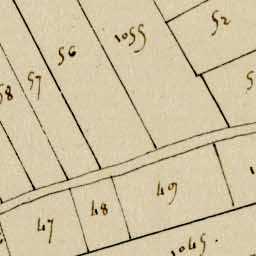 52
1055
56
57
58
5
49
48
47
1045.